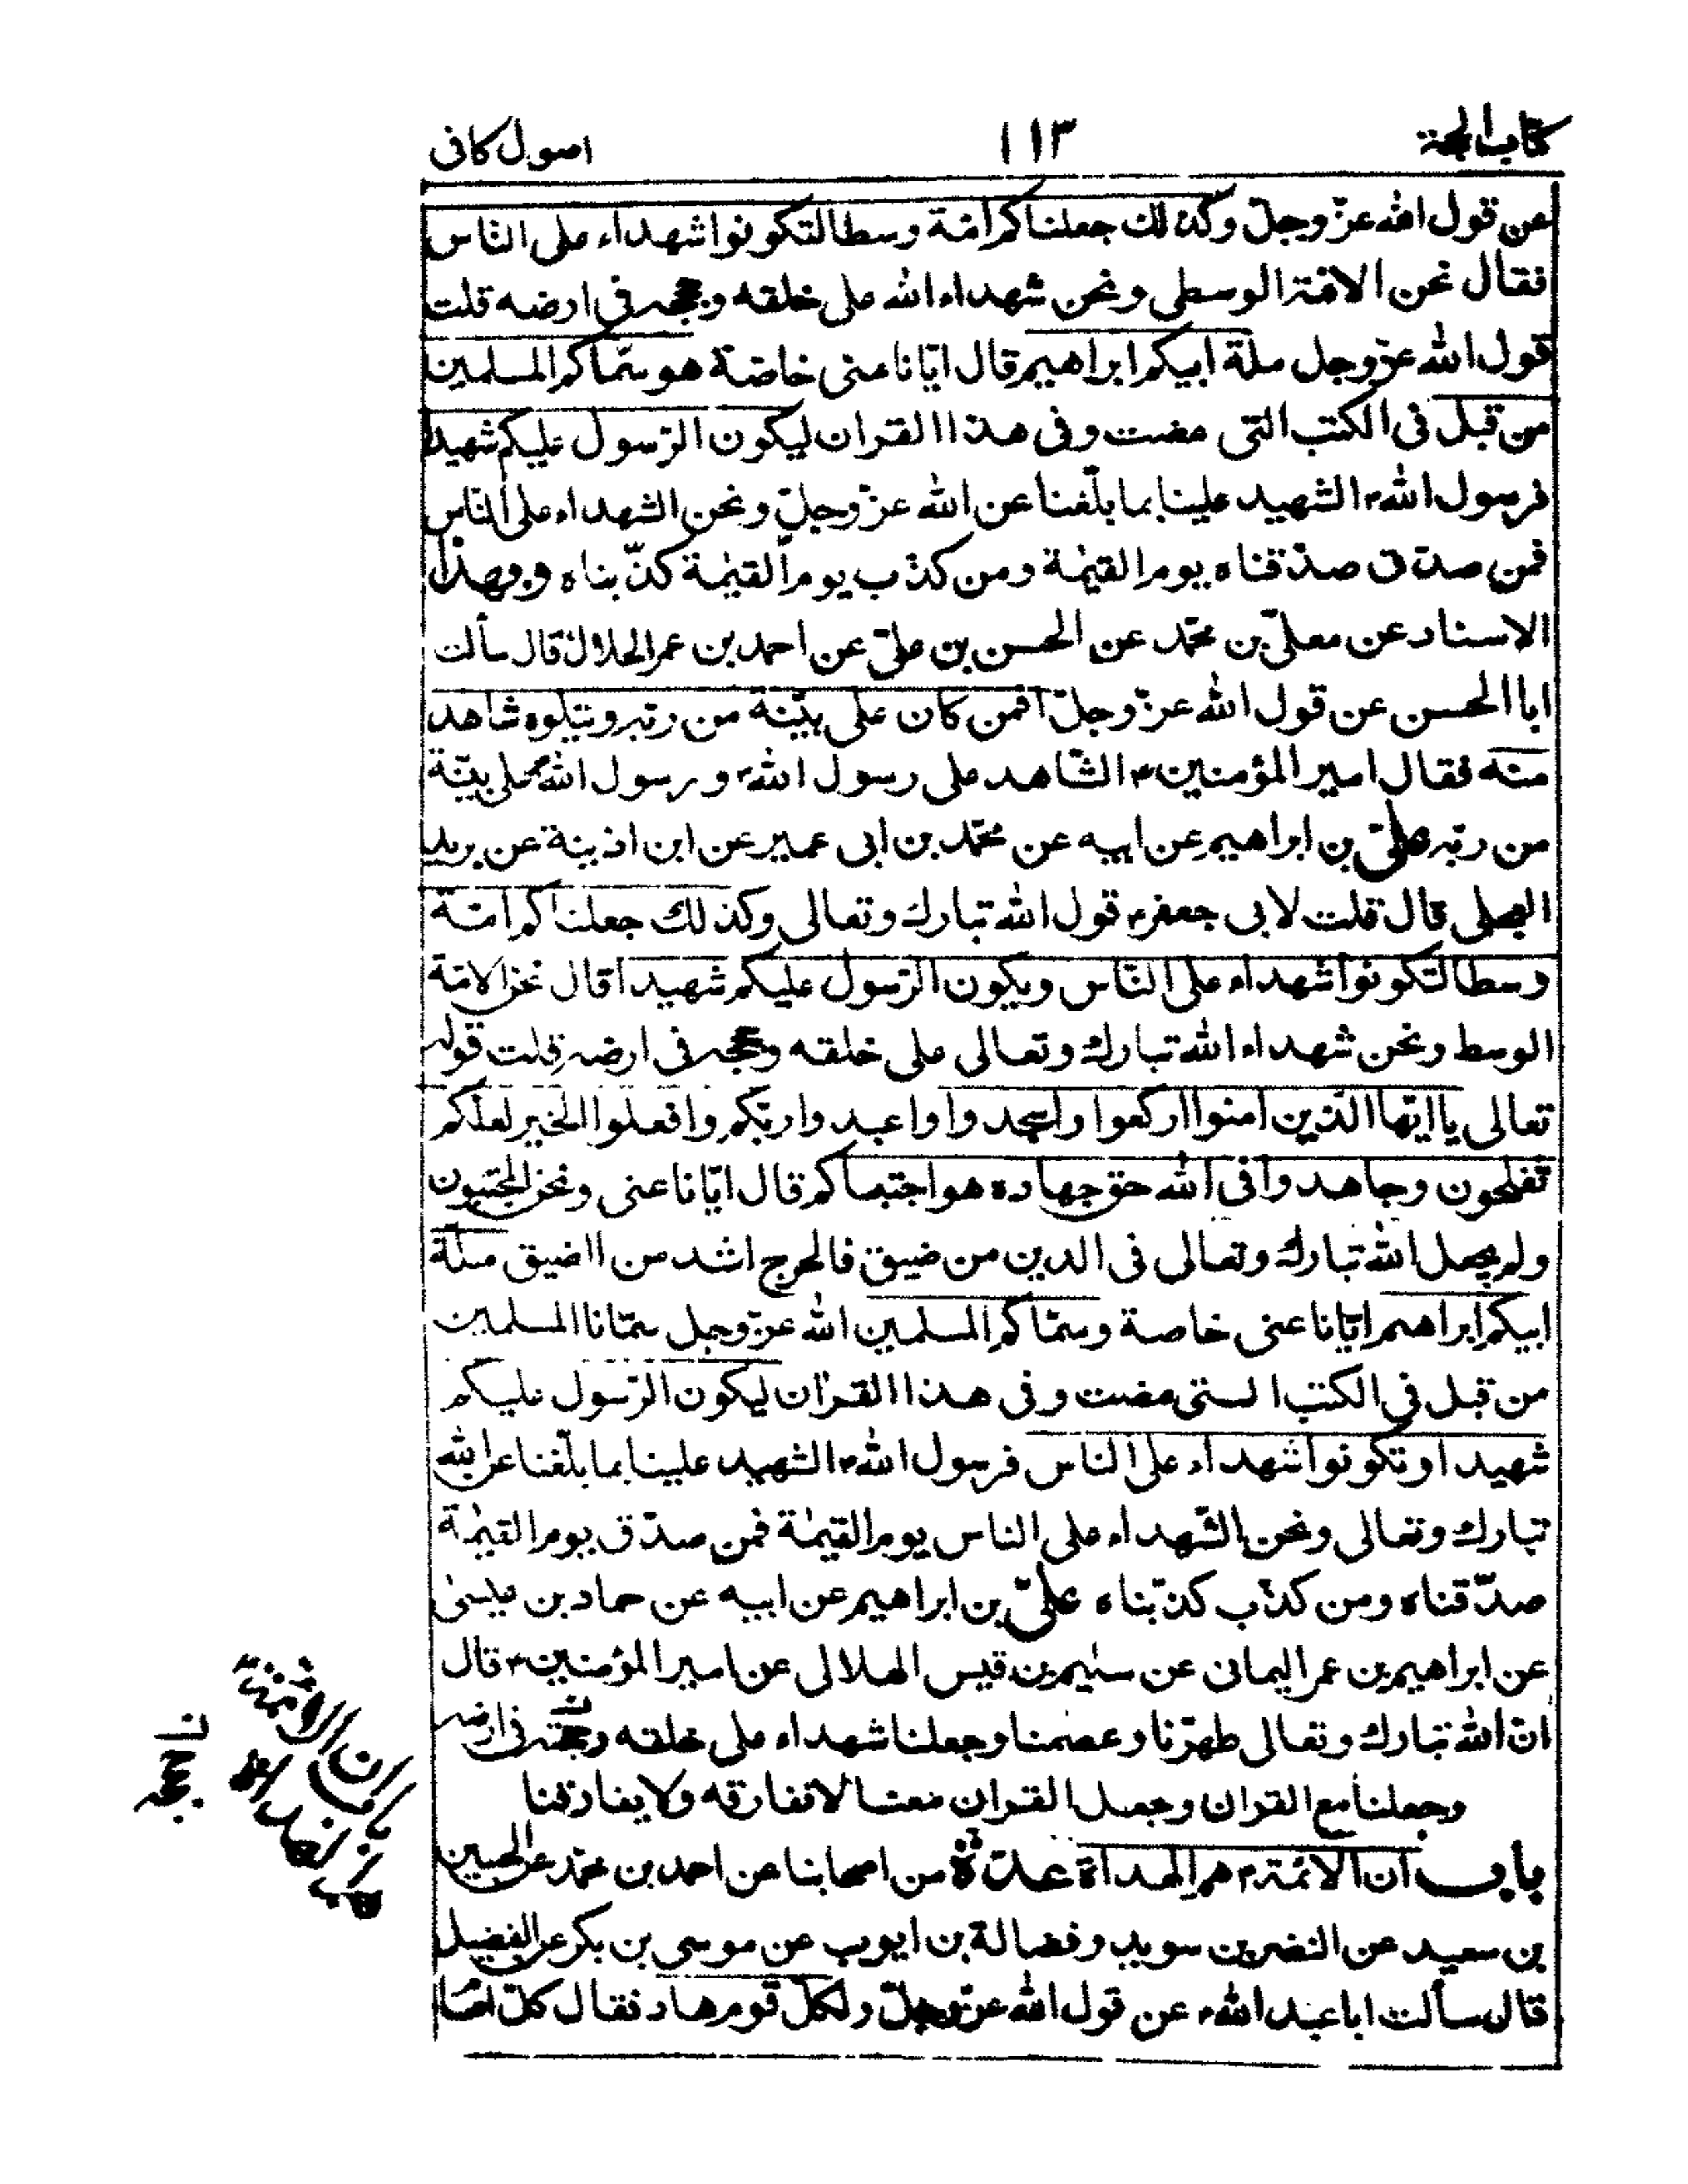 كتاب الحجة ١١٣ اصول كافى
عن قول الله عزّ وجلّ وكذلك جعلناكم امّة وسطا لتكونوا شهداء على النّاس
فقال نحن الامّة الوسطى ونحن شهداء الله على خلقه وحججه فى ارضه قلت
قول الله عزّ وجل ملّة ابيكم ابراهيم قال ايّانا عنى خاصّة هو سمّاكم المسلمين
من قبل فى الكتب التى مضت وفى هذا القران ليكون الرّسول عليكم شهيدا
فرسول الله ۳ الشهيد علينا بما بلّغنا عن الله عزّ وجلّ ونحن الشهداء على النّاس
فمن صدّق صدّقناه يوم القيٰمة ومن كذّب يوم القيٰمة كذّبناه وبهذا
الاسناد عن معلّى بن محمّد عن الحسن بن علىّ عن احمد بن عمر الحلال قال سألت
ابا الحسن عن قول الله عزّ وجلّ افمن كان على بيّنة من ربّه ويتلوه شاهد
منه فقال امير المؤمنين ۴ الشّاهد على رسول الله ۳ ورسول الله ۳ على بيّنة
من ربّه علىّ بن ابراهيم عن ابيه عن محمّد بن ابى عمير عن ابن اذينة عن بريد
العجلى قال قلت لابى جعفر ۴ قول الله تبارك وتعالى وكذلك جعلناكم امّة
وسطا لتكونوا شهداء على النّاس ويكون الرّسول عليكم شهيدا قال نحن الامّة
الوسط ونحن شهداء الله تبارك وتعالى على خلقه وحججه فى ارضه قلت قوله
تعالى يا ايّها الّذين امنوا اركعوا واسجدوا واعبدوا ربّكم وافعلوا الخير لعلّكم
تفلحون وجاهدوا فى الله حق جهاده هو اجتباكم قال ايّانا عنى ونحن المجتبون
ولم يجعل الله تبارك وتعالى فى الدين من ضيق فالحرج اشد من الضيق ملّة
ابيكم ابراهيم ايّانا عنى خاصة وسمّاكم المسلمين الله عزّ وجل سمّانا المسلمين
من قبل فى الكتب الستى مضت وفى هذا القراٰن ليكون الرّسول عليكم
شهيدا وتكونوا شهداء على الناس فرسول الله ۳ الشهيد علينا بما بلّغنا عن الله
تبارك وتعالى ونحن الشّهداء على الناس يوم القيٰمة فمن صدّق يوم القيٰمة
صدّقناه ومن كذّب كذّبناه علىّ بن ابراهيم عن ابيه عن حماد بن عيسىٰ
عن ابراهيم بن عمر اليمانى عن سليم بن قيس الهلالى عن امير المؤمنين ۴ قال
انّ الله تبارك وتعالى طهّرنا وعصمنا وجعلنا شهداء على خلقه وحجته فى ارضه
وجعلنا مع القران وجعل القران معنا لا نفارقه ولا يفارقنا
باب ان الائمّة ۴ هم الهداة عدّة من اصحابنا عن احمد بن محمّد عن الحسين
بن سعيد عن النضر بن سويد وفضالة بن ايوب عن موسى بن بكر عن الفضيل
قال سألت ابا عبد الله ۴ عن قول الله عزّ وجلّ ولكلّ قوم هاد فقال كلّ امام
باب ان الائمة